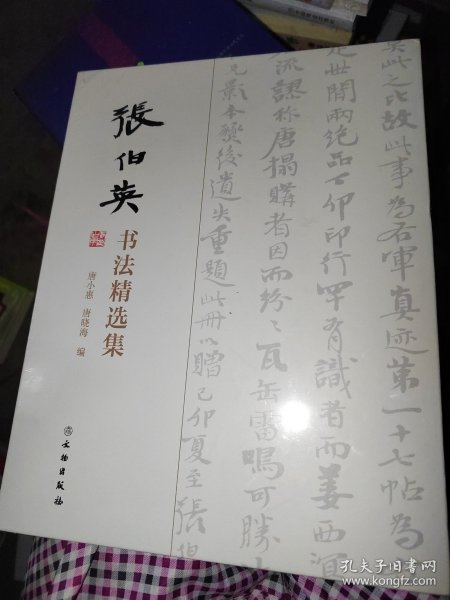 張伯英
书法精选集
唐小惠 唐晓海 编
文物出版社
吴此之比故此事為右軍真迹第一十七帖為
世間兩绝品丁卯印行罕有識者而姜西溟
流認称唐搨購者因而紛〻瓦缶雷鳴可勝
兄影本發後遺失重題此冊以贈己卯夏至張伯
孔夫子旧书网
www.kongfz.com